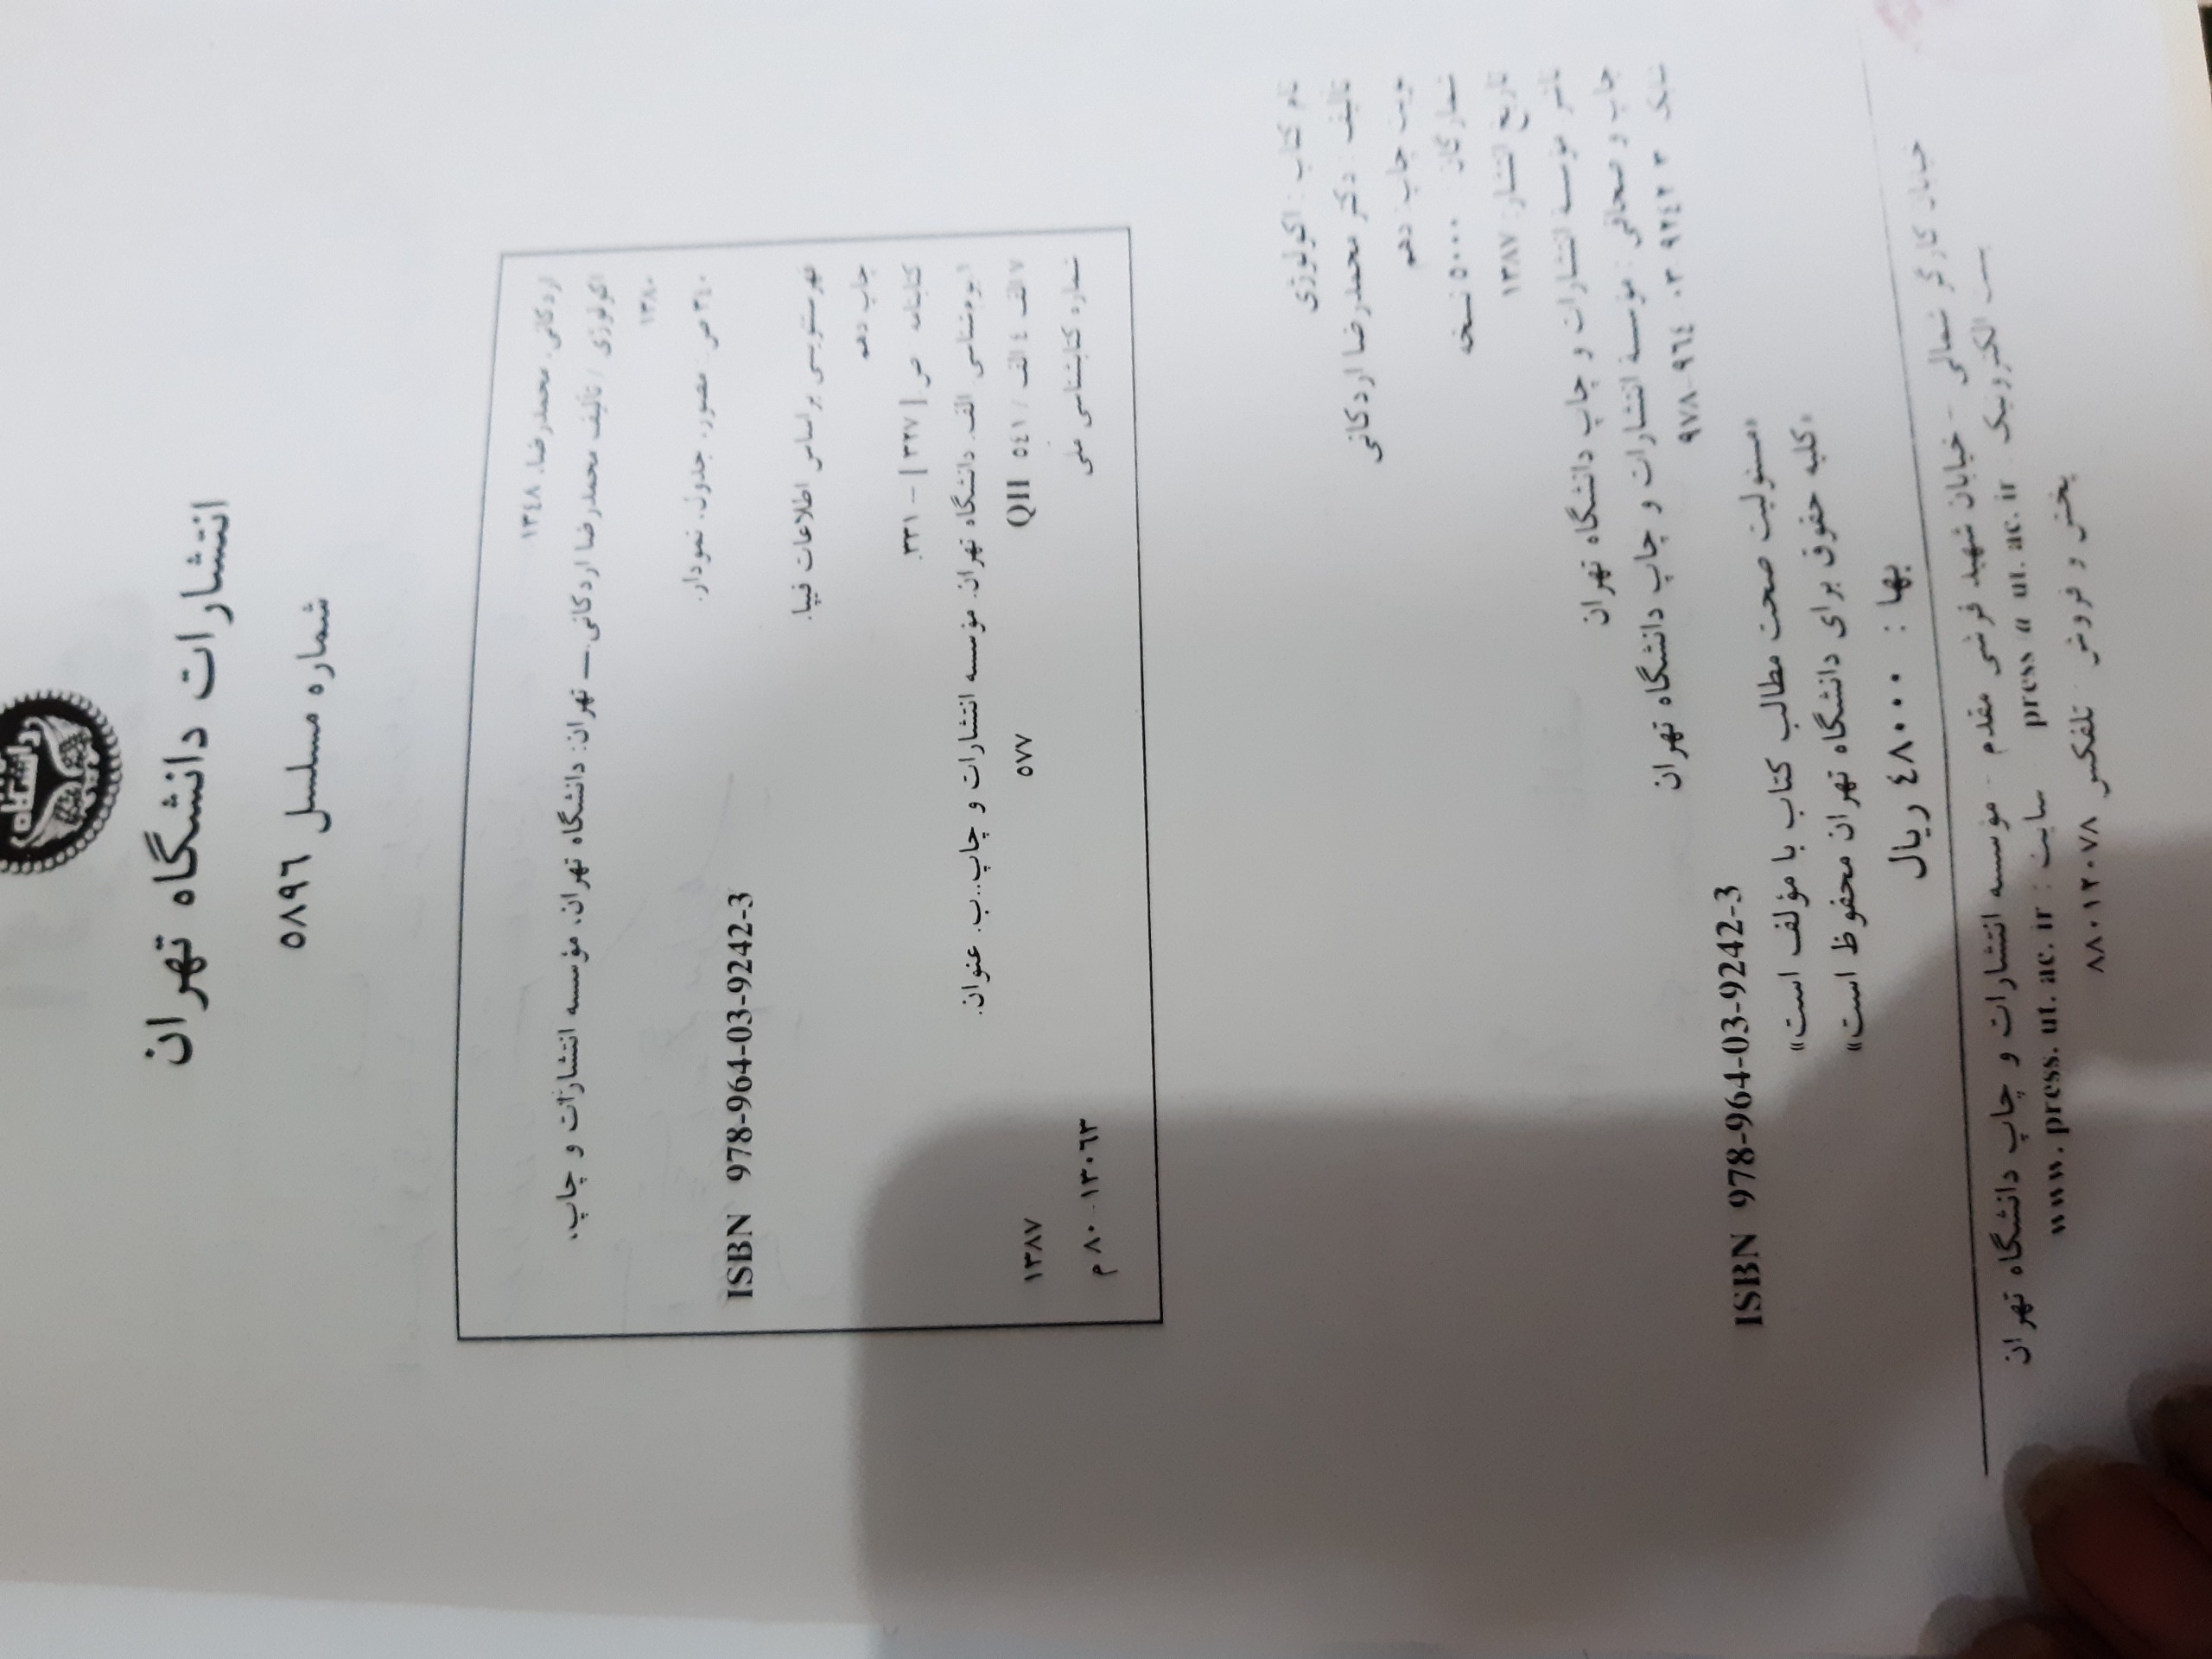 انتشارات دانشگاه تهران
شماره مسلسل ٥٨٩٦
اردکانی، محمدرضا، ١٣٤٨
اکولوژی / تألیف محمدرضا اردکانی. ــ تهران: دانشگاه تهران، مؤسسه انتشارات و چاپ،
١٣٨٠.
٣٤٠ ص. مصور، جدول، نمودار.
ISBN 978-964-03-9242-3
فهرستنویسی براساس اطلاعات فیپا.
چاپ دهم
کتابنامه ص. [٣٢٧] - ٣٣١.
١. بوم‌شناسی. الف. دانشگاه تهران. مؤسسه انتشارات و چاپ..ب. عنوان.
٧ الف ٤ الف / ٥٤١ QH ٥٧٧ ١٣٨٧
شماره کتابشناسی ملی م ٨٠-١٣٠٦٣
نام کتاب : اکولوژی
تألیف : دکتر محمدرضا اردکانی
نوبت چاپ : دهم
شمارگان : ٥٠٠٠ نسخه
تاریخ انتشار : ١٣٨٧
ناشر مؤسسة انتشارات و چاپ دانشگاه تهران
چاپ و صحافی : مؤسسة انتشارات و چاپ دانشگاه تهران
شابک ٣ ٩٢٤٢ ٠٣ ٩٦٤-٩٧٨
ISBN 978-964-03-9242-3
«مسئولیت صحت مطالب کتاب با مؤلف است»
«کلیه حقوق برای دانشگاه تهران محفوظ است»
بها : ٤٨٠٠٠ ریال
خیابان کارگر شمالی - خیابان شهید فرشی مقدم - مؤسسه انتشارات و چاپ دانشگاه تهران
پست الکترونیک press @ ut. ac. ir سایت : www. press. ut. ac. ir
پخش و فروش : تلفکس ٨٨٠١٢٠٧٨